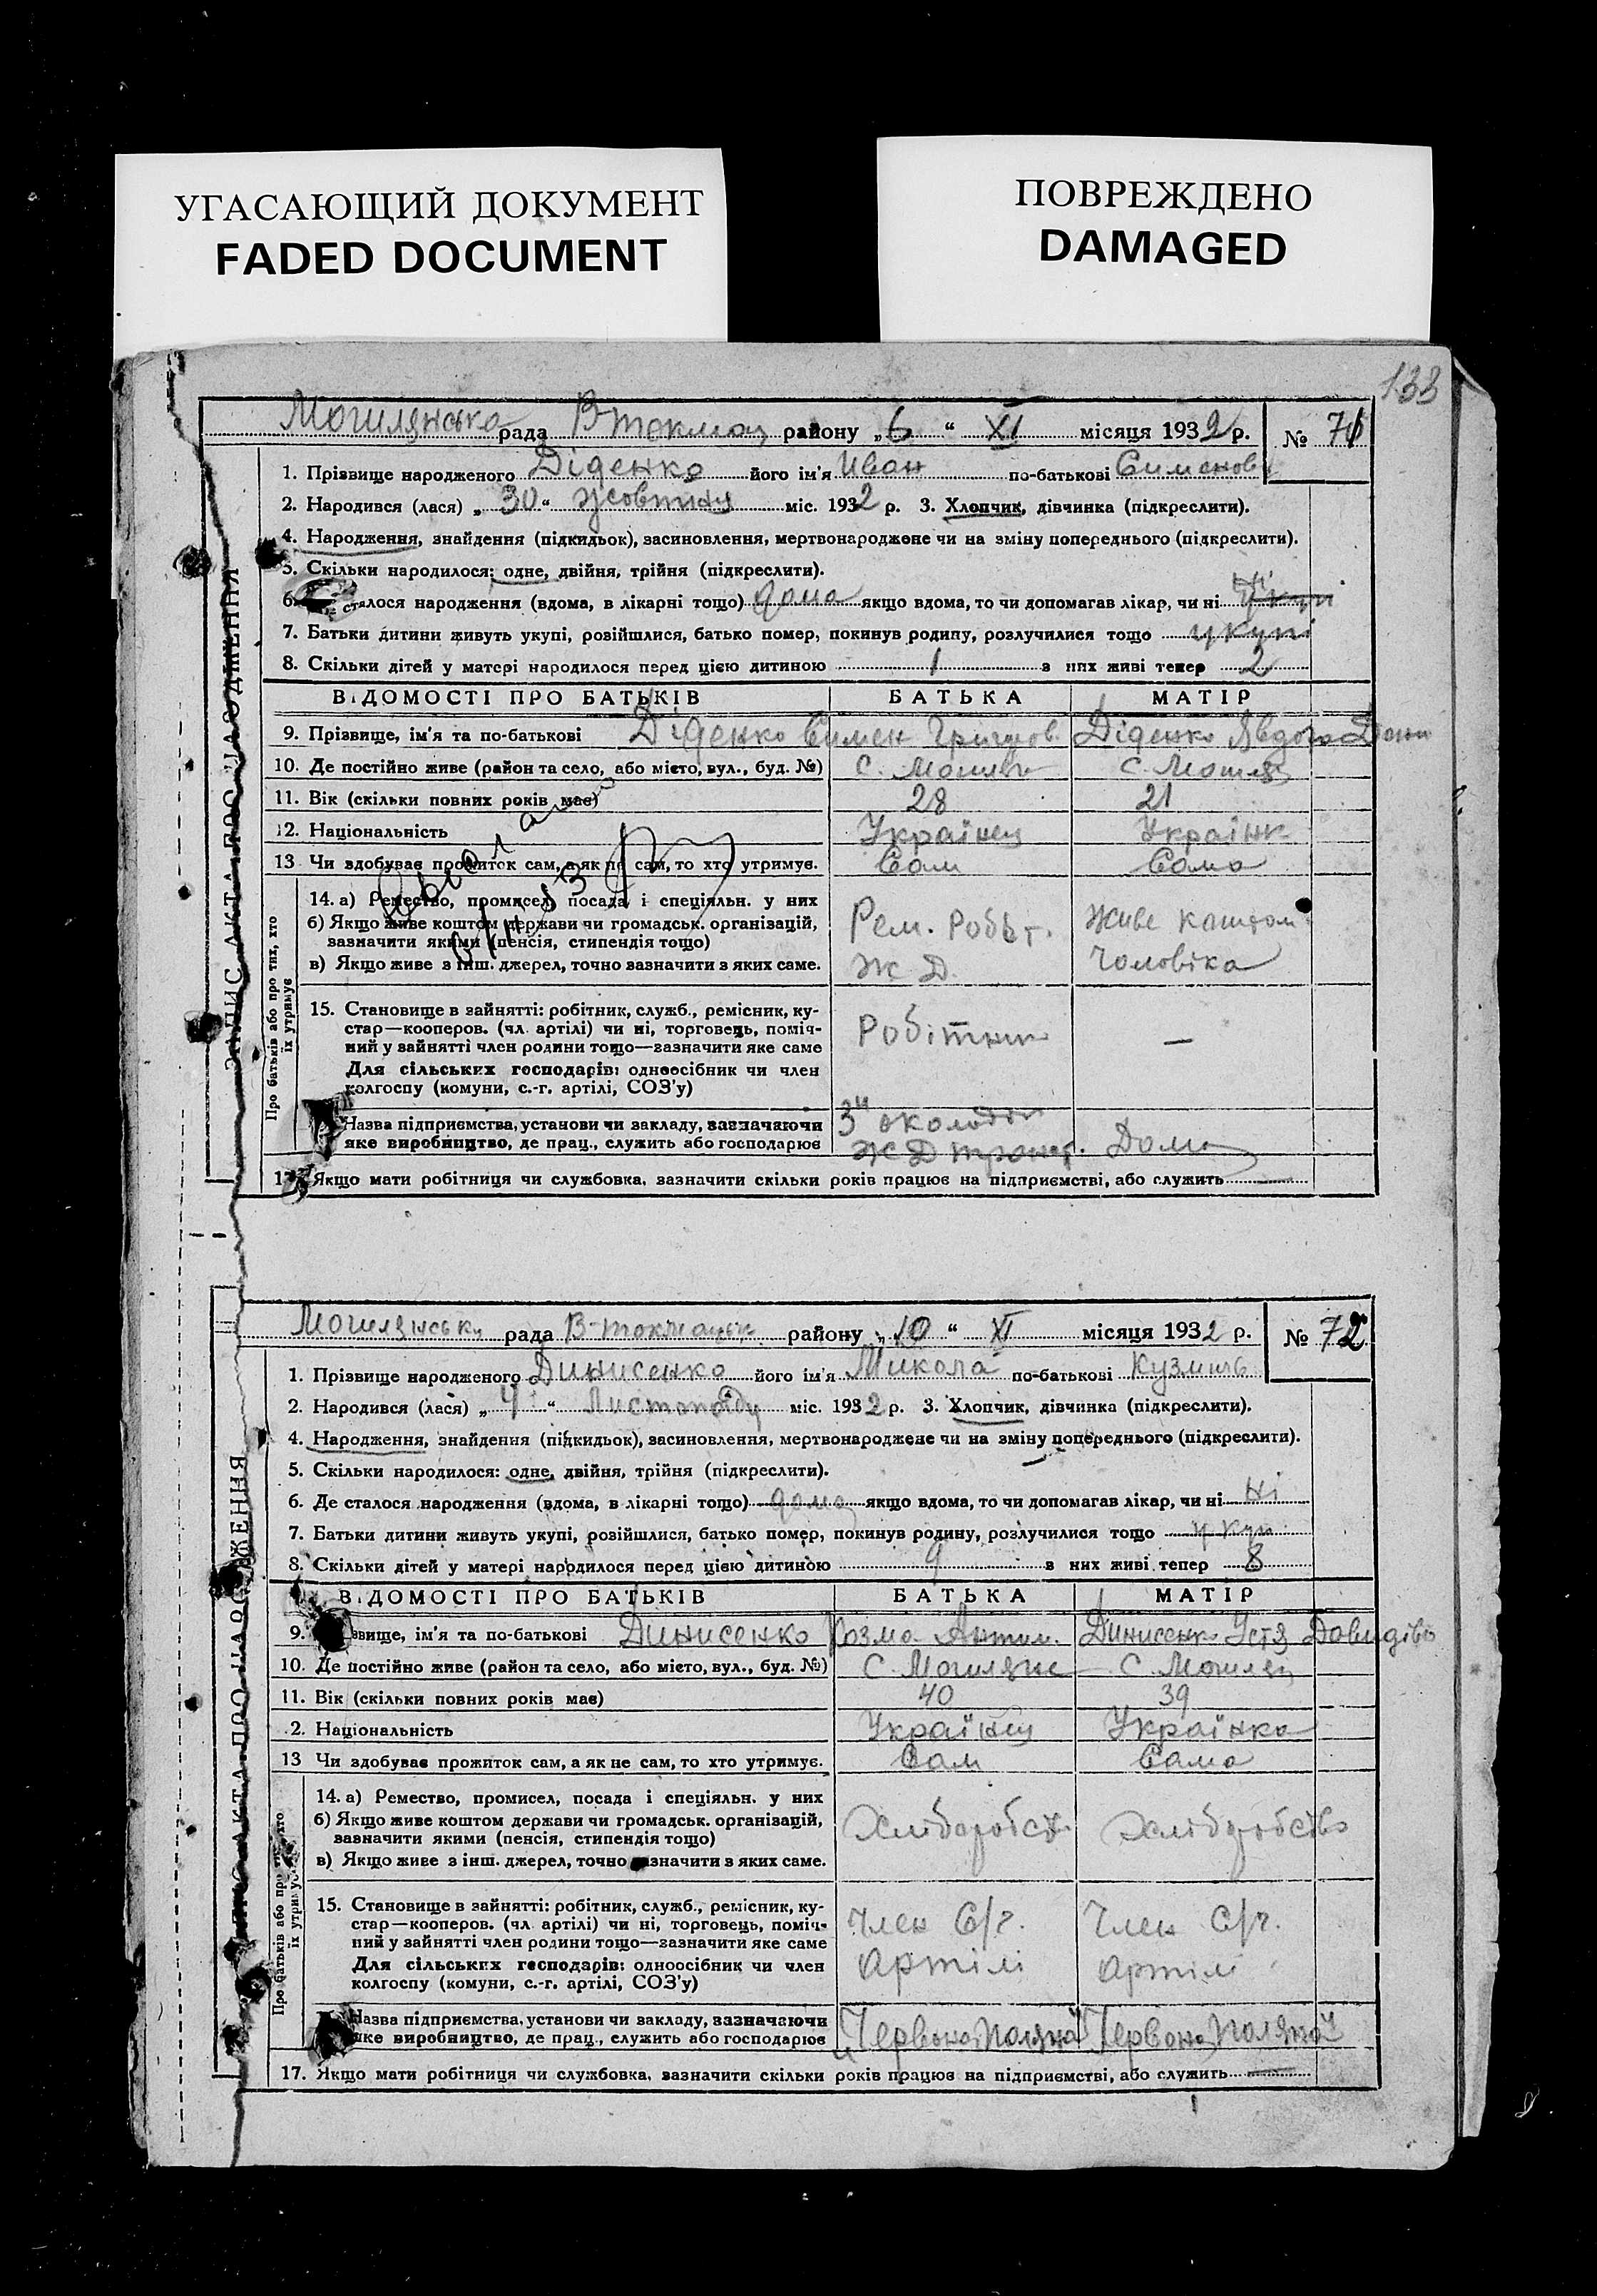 УГАСАЮЩИЙ ДОКУМЕНТ
FADED DOCUMENT
ПОВРЕЖДЕНО
DAMAGED
133
Могилянська рада В-токмац району „6“ XI місяця 1932 р. № 71
1. Прізвище народженого Діденко його ім'я Иван по-батькові Сименов
2. Народився (лася) „30“ жовтня міс. 1932 р. 3. Хлопчик, дівчинка (підкреслити).
4. Народження, знайдення (підкидьок), засиновлення, мертвонароджене чи на зміну попереднього (підкреслити).
5. Скільки народилося: одне, двійня, трійня (підкреслити).
6. сталося народження (вдома, в лікарні тощо) дома якщо вдома, то чи допомагав лікар, чи ні ні
7. Батьки дитини живуть укупі, розійшлися, батько помер, покинув родину, розлучилися тощо укупі
8. Скільки дітей у матері народилося перед цією дитиною 1 з них живі тепер 2
ВІДОМОСТІ ПРО БАТЬКІВ БАТЬКА МАТІР
9. Прізвище, ім'я та по-батькові Діденко Симен Григоров. Діденко Явдоха
10. Де постійно живе (район та село, або місто, вул., буд. №) С. Могиляни С. Могиля
11. Вік (скільки повних років має) 28 21
12. Національність Українец Українк
13 Чи здобуває прожиток сам, а як не сам, то хто утримує. Сам Сама
14. а) Ремество, промисел, посада і спеціяльн. у них
б) Якщо живе коштом держави чи громадськ. організацій,
зазначити якими (пенсія, стипендія тощо)
в) Якщо живе з інш. джерел, точно зазначити з яких саме.
Рем. Робіт. Ж Д.
Живе коштом чоловіка
15. Становище в зайнятті: робітник, служб., ремісник, ку-
стар—кооперов. (чл. артілі) чи ні, торговець, поміч-
ний у зайнятті член родини тощо—зазначити яке саме
Для сільських господарів: одноосібник чи член
колгоспу (комуни, с.-г. артілі, СОЗ'у)
Робітник —
Назва підприємства, установи чи закладу, зазначаючи
яке виробництво, де прац., служить або господарює
3й околоток
Ж Д транс. Дома
17. Якщо мати робітниця чи службовка, зазначити скільки років працює на підприємстві, або служить
ЗАПИС АКТА ПРО НАРОДЖЕННЯ
Про батьків або про тих, хто
їх утримує
Могилянську рада В-токмацьк району „10“ XI місяця 1932 р. № 72
1. Прізвище народженого Динисенко його ім'я Микола по-батькові Кузмич
2. Народився (лася) „4“ Листопаду міс. 1932 р. 3. Хлопчик, дівчинка (підкреслити).
4. Народження, знайдення (підкидьок), засиновлення, мертвонароджене чи на зміну попереднього (підкреслити).
5. Скільки народилося: одне, двійня, трійня (підкреслити).
6. Де сталося народження (вдома, в лікарні тощо) дома якщо вдома, то чи допомагав лікар, чи ні ні
7. Батьки дитини живуть укупі, розійшлися, батько помер, покинув родину, розлучилися тощо укуп
8. Скільки дітей у матері народилося перед цією дитиною 9 з них живі тепер 8
ВІДОМОСТІ ПРО БАТЬКІВ БАТЬКА МАТІР
9. звище, ім'я та по-батькові Динисенко Козма Антин. Динисенк Устя Давидівн
10. Де постійно живе (район та село, або місто, вул., буд. №) С. Могиляне С. Могиля
11. Вік (скільки повних років має) 40 39
2. Національність Українец Українка
13 Чи здобуває прожиток сам, а як не сам, то хто утримує. Сам Сама
14. а) Ремество, промисел, посада і спеціяльн. у них
б) Якщо живе коштом держави чи громадськ. організацій,
зазначити якими (пенсія, стипендія тощо)
в) Якщо живе з інш. джерел, точно зазначити з яких саме.
Хліборобств Хліборобство
15. Становище в зайнятті: робітник, служб., ремісник, ку-
стар—кооперов. (чл. артілі) чи ні, торговець, поміч-
ний у зайнятті член родини тощо—зазначити яке саме
Для сільських господарів: одноосібник чи член
колгоспу (комуни, с.-г. артілі, СОЗ'у)
Член С/г. артілі
Член С/г. артілі
Назва підприємства, установи чи закладу, зазначаючи
яке виробництво, де прац., служить або господарює
„Червона Поляна" Червона Поляна"
17. Якщо мати робітниця чи службовка, зазначити скільки років працює на підприємстві, або служить